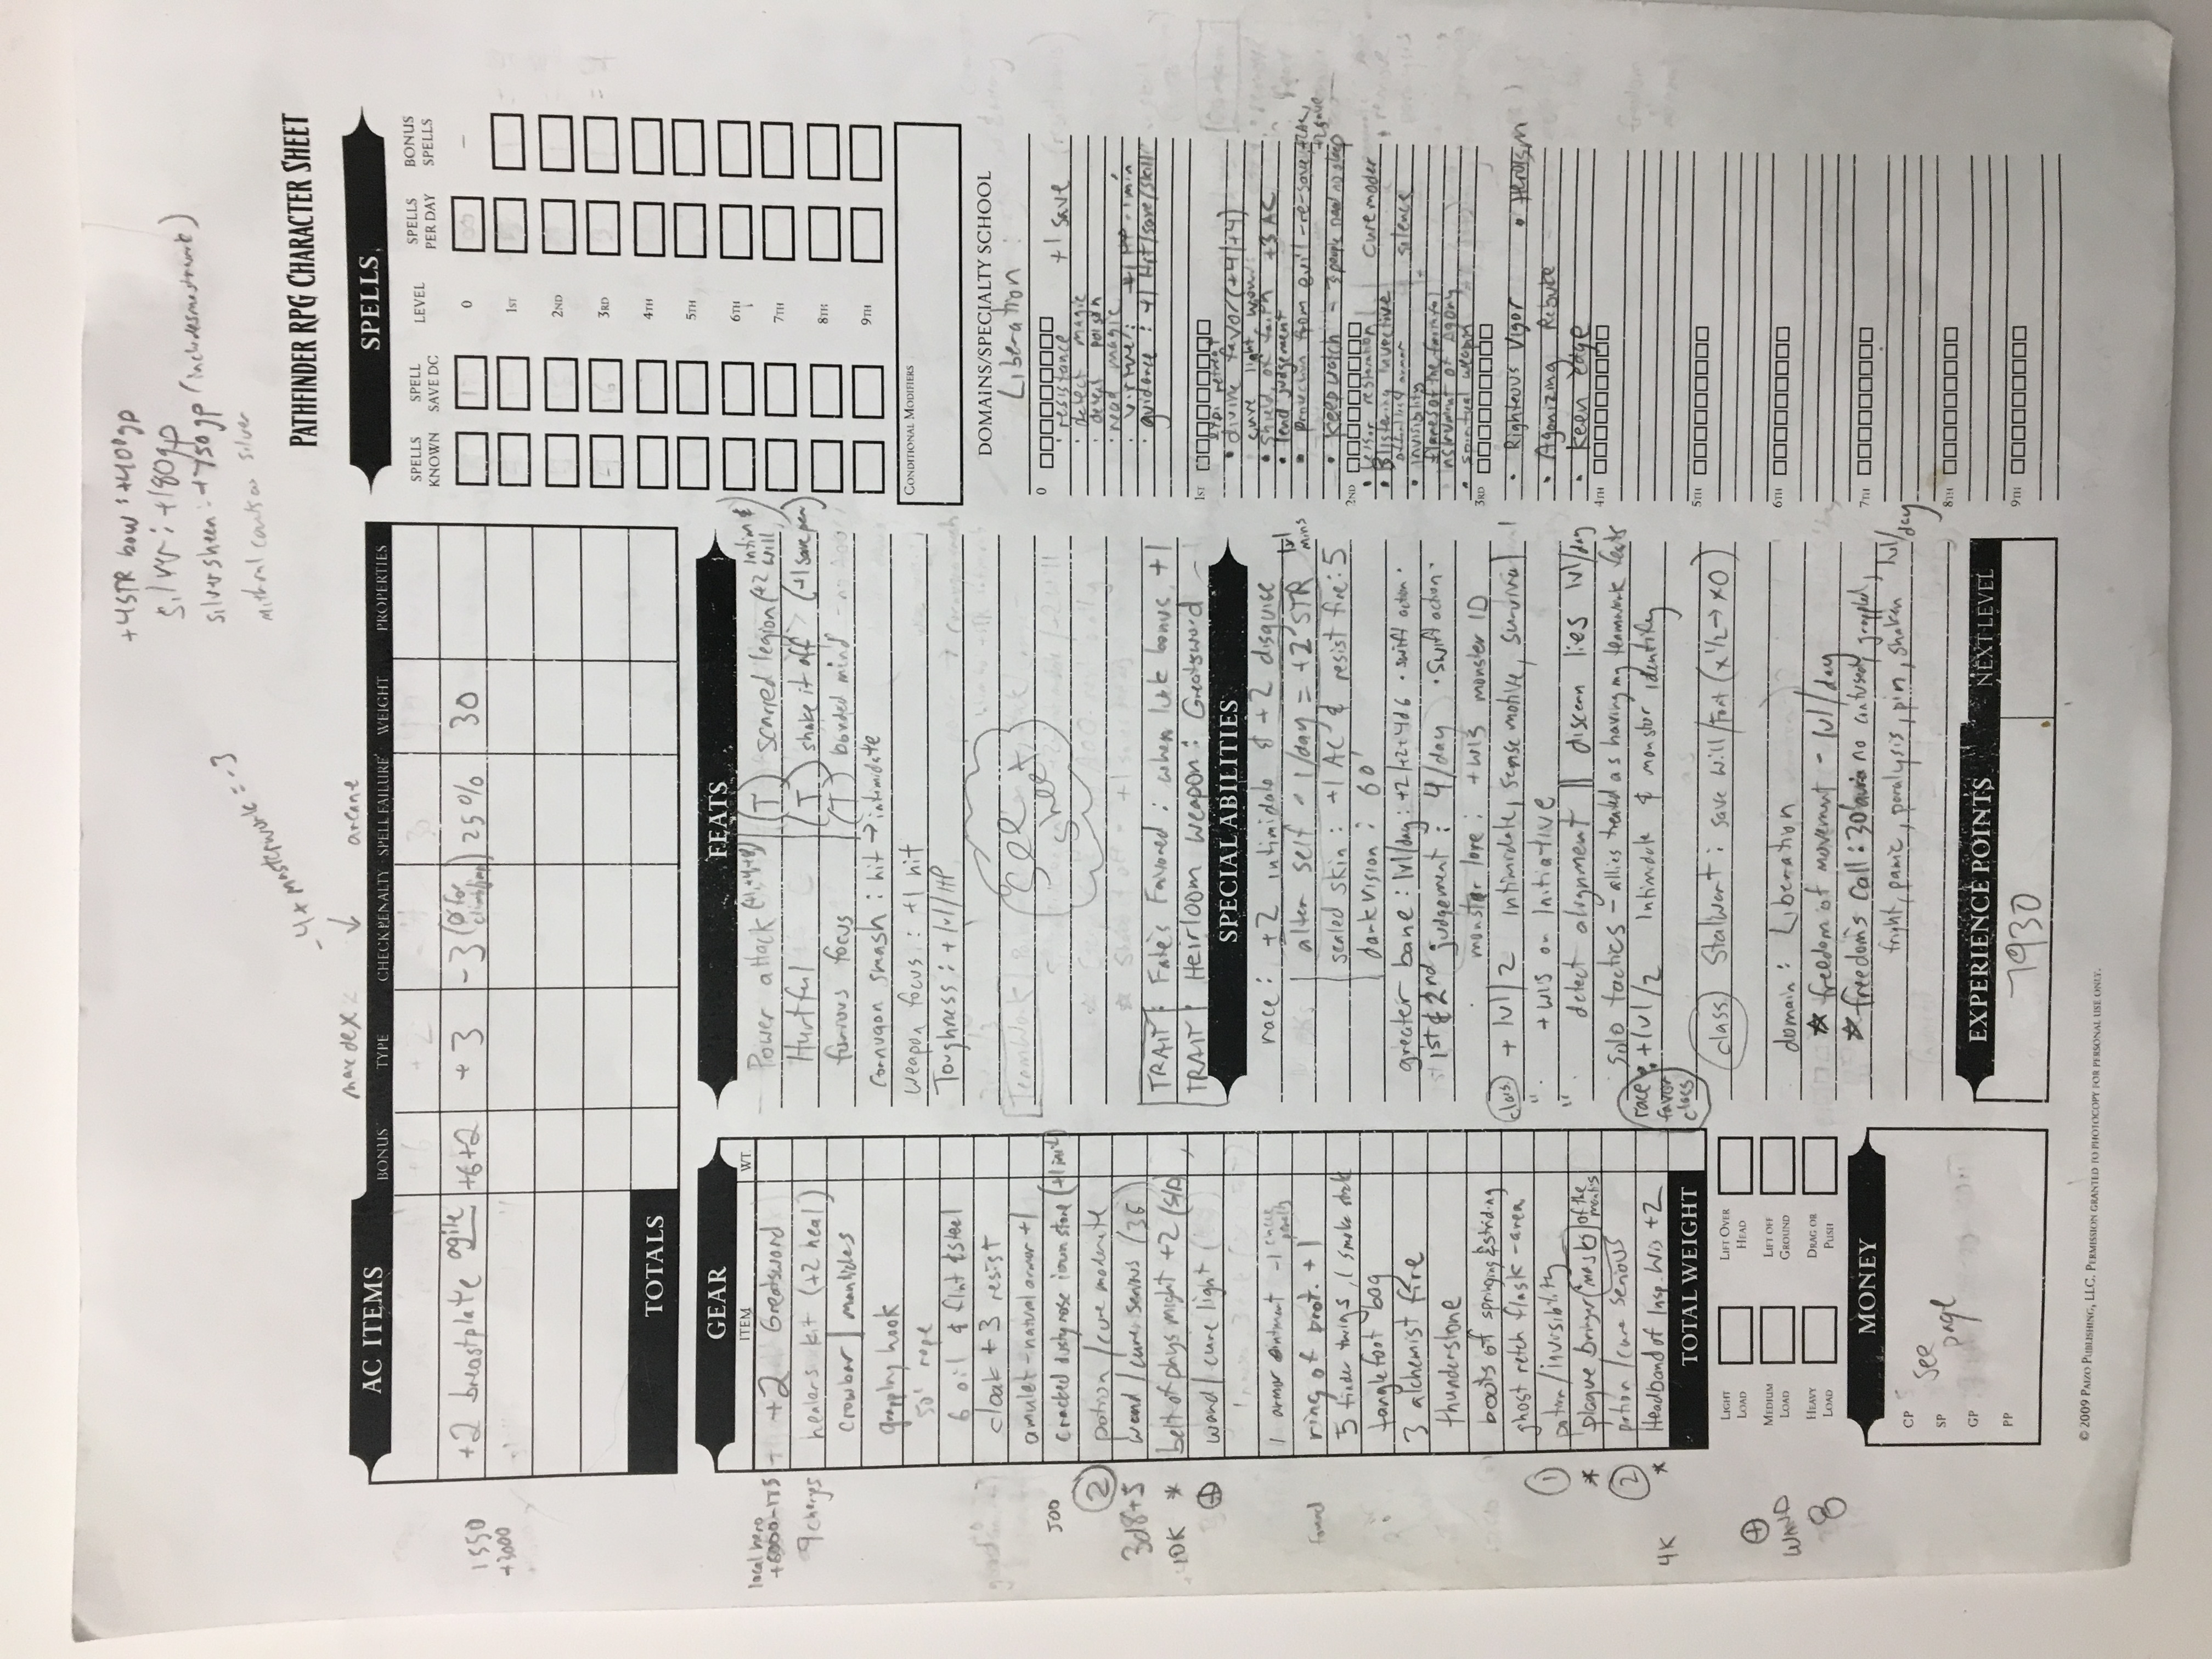 +4 STR bow : +400gp
silver : +180gp
silversheen : +750gp (includes mastrwork)
mithral counts as silver
-4 + masterwork = -3
PATHFINDER RPG CHARACTER SHEET
max dex
arcane
AC ITEMS
BONUS TYPE CHECK PENALTY SPELL FAILURE WEIGHT PROPERTIES
+6 +2 30
1550
+3000
+2 breastplate agile +6+2 +3 -3 (Ø for climb/jump) 25% 30
TOTALS
GEAR
ITEM WT.
local hero
+6000-175
+2 Greatsword
9 charges
healers kit (+2 heal)
crowbar | manticles
grappling hook
50' rope
6 oil & flint & steel
cloak +3 resist
amulet - natural armor +1
500
cracked dusty rose ioun stone (+1 init)
2
potion / cure moderate
3d8+5
wand / cure serious (36)
10K *
belt of phys might +2 (S/D)
wand / cure light
1 armor ointment -1 check penalty
found
ring of prot. +1
5 tinder twigs, 1 smoke stick
tanglefoot bag
3 alchemist fire
thunderstone
boots of springing & striding
ghost retch flask - area
1
potion / invisibility
*
plague bringer (mask) of the mantis
2
potion / cure serious
4K *
Headband of Insp. Wis +2
TOTAL WEIGHT
LIGHT LOAD
LIFT OVER HEAD
MEDIUM LOAD
LIFT OFF GROUND
HEAVY LOAD
DRAG OR PUSH
WAND
8
MONEY
CP 5
SP
GP
PP
see page
FEATS
Power attack (+1, +4, +8) (T) scarred legion (+2 Intim & will)
Hurtful (T) shake it off (+1 save per)
furious focus (T) bonded mind - no AOO
cornugon smash : hit → intimidate
weapon focus : +1 hit
Toughness : +lvl/HP
TeamWork
see sheet
Shake it off - +1 save
TRAIT : Fate's Favored : when luk bonus, +1
TRAIT Heirloom weapon : Greatsword
SPECIAL ABILITIES
race : +2 intimidate & +2 disguise
alter self - 1/day = +2 STR lvl mins
scaled skin : +1 AC & resist fire : 5
darkvision : 60'
greater bane : lvl/day : +2/+2+4d6 • swift action •
1st & 2nd judgement : 4/day • swift action •
monster lore : +WIS monster ID
class +lvl/2 Intimidate, sense motive, survival
" +WIS on Initiative
" detect alignment || discern lies lvl/day
solo tactics - allies treated as having my teamwork feats
race favor class : +lvl/2 Intimidate & monster identify
class Stalwart : save will/Fort (x½ → x0)
domain : Liberation
☆ freedom of movement - lvl/day
☆ freedom's call : 30' aura no confused, grappled,
fright, panic, paralysis, pin, shaken lvl/day
EXPERIENCE POINTS NEXT LEVEL
7930
SPELLS
SPELLS KNOWN
SPELL SAVE DC
LEVEL
SPELLS PER DAY
BONUS SPELLS
0 –
1ST
2ND
3RD 16
4TH
5TH
6TH
7TH
8TH
9TH
CONDITIONAL MODIFIERS
DOMAINS/SPECIALTY SCHOOL
Liberation :
0
• resistance +1 save
• detect magic
• detect poison
• read magic
• virtue : +1 HP - 1 min
• guidance : +1 Hit/save/skill
1ST
expi retreat
• divine favor (+4/+4)
cure light wound
• shield of faith +3 AC
• lend judgement
• protection from evil - re-save, +2 AC, +2 save
• Keep watch - 3 people need no sleep
2ND
• lesser restoration cure moder
• Blistering Invective
silence
• invisibility
flames of the faithful
instrument of Agony
• spiritual weapon
3RD
• Righteous Vigor • Heroism
• Agonizing Rebuke
• Keen edge
4TH
5TH
6TH
7TH
8TH
9TH
© 2009 PAIZO PUBLISHING, LLC. PERMISSION GRANTED TO PHOTOCOPY FOR PERSONAL USE ONLY.